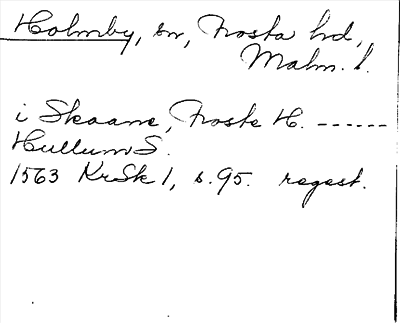 Holmby, sn, Frosta hd,
Malm. l.
i Skaane, Froste H. ------
Hullum S.
1563 KrSk 1, s. 95. regest.